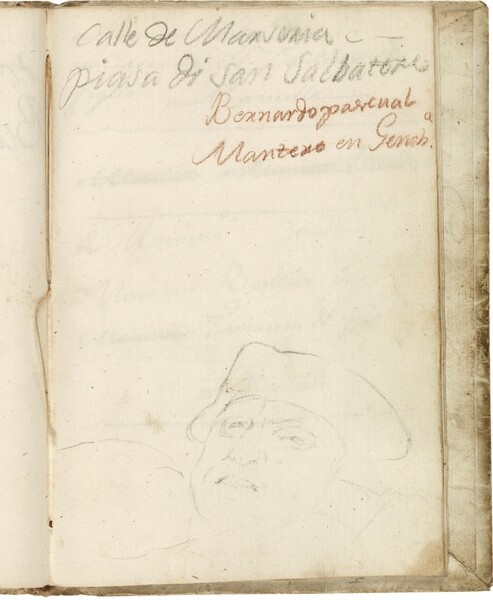 Calle de Mansuria e
piasa di San Salbatore
Bernardo pascual
Mantero en Genoba